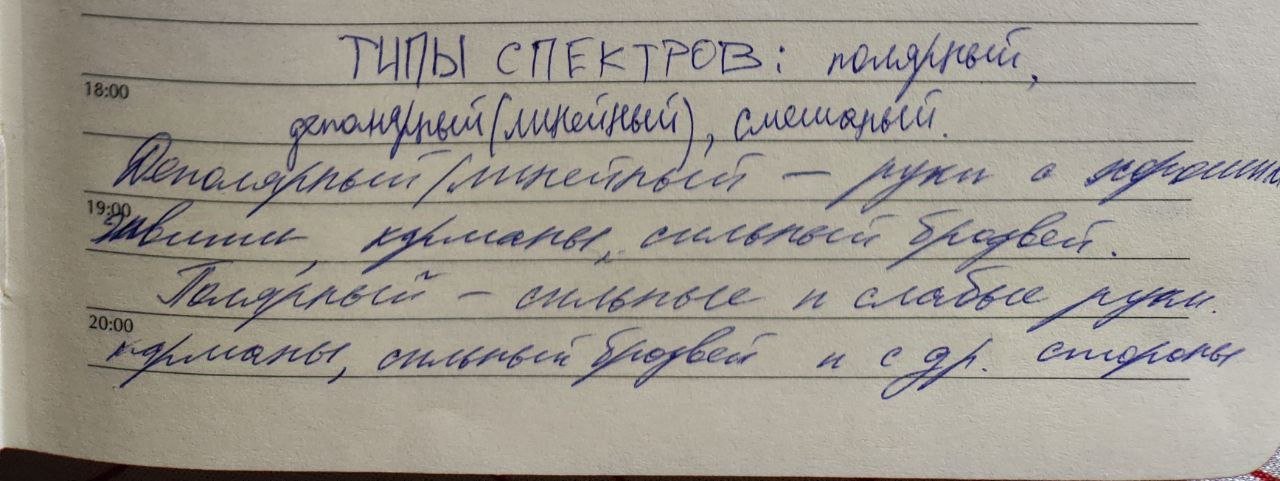 ТИПЫ СПЕКТРОВ: полярный,
18:00
деполярный (линейный), смешаный.
Деполярный (линейный – руки с хорошим
19:00
эквити, карманы, сильный бродвей.
Полярный – сильные и слабые руки.
20:00
карманы, сильный бродвей и с др. стороны